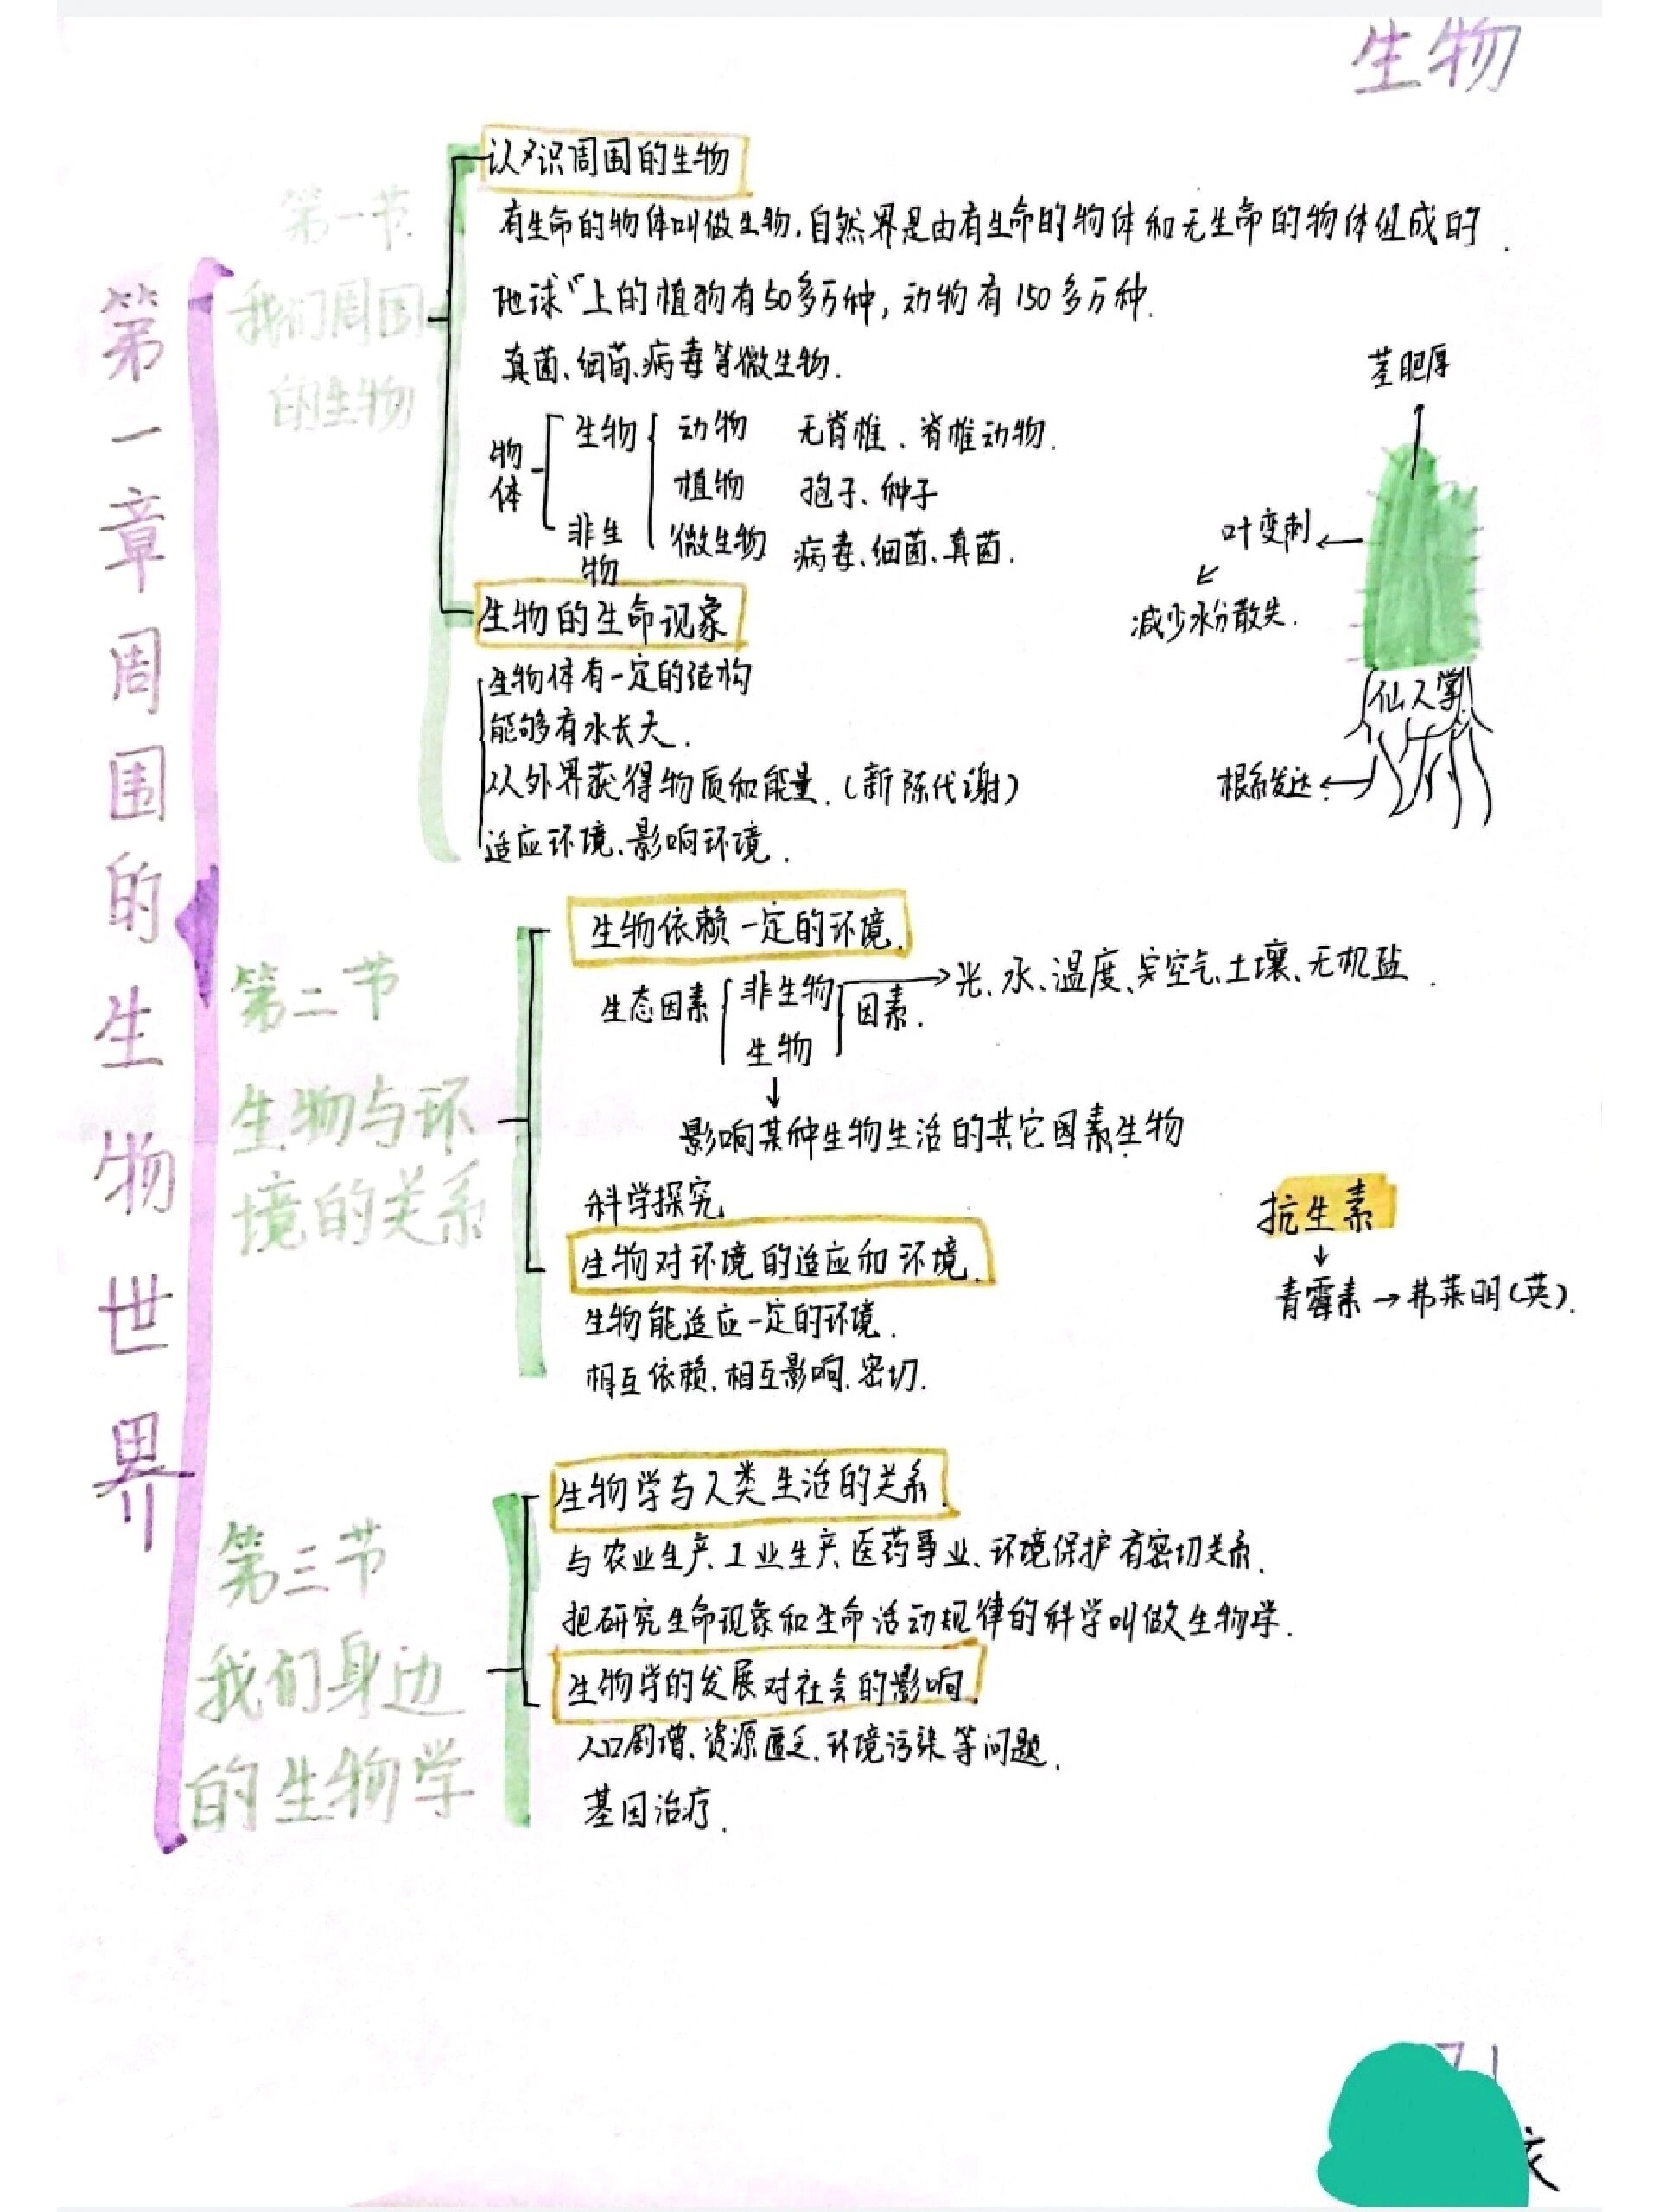 生物
第一章周围的生物世界
第一节
我们周围
的生物
认识周围的生物
有生命的物体叫做生物.自然界是由有生命的物体和无生命的物体组成的.
地球上的植物有50多万种,动物有150多万种.
真菌、细菌、病毒等微生物.
物体
生物
动物 无脊椎、脊椎动物.
植物 孢子、种子
微生物 病毒、细菌、真菌.
非生物
茎肥厚
叶变刺
减少水分散失.
仙人掌
根系发达.
生物的生命现象
生物体有一定的结构
能够有水长大.
从外界获得物质和能量.(新陈代谢)
适应环境、影响环境.
第二节
生物与环
境的关系
生物依赖一定的环境.
生态因素
非生物
生物
因素.
光、水、温度、空气、土壤、无机盐.
影响某种生物生活的其它因素生物
科学探究
生物对环境的适应和环境.
生物能适应一定的环境.
相互依赖.相互影响.密切.
抗生素
青霉素→弗莱明(英).
第三节
我们身边
的生物学
生物学与人类生活的关系.
与农业生产、工业生产、医药事业、环境保护有密切关系.
把研究生命现象和生命活动规律的科学叫做生物学.
生物学的发展对社会的影响.
人口剧增、资源匮乏、环境污染等问题.
基因治疗.